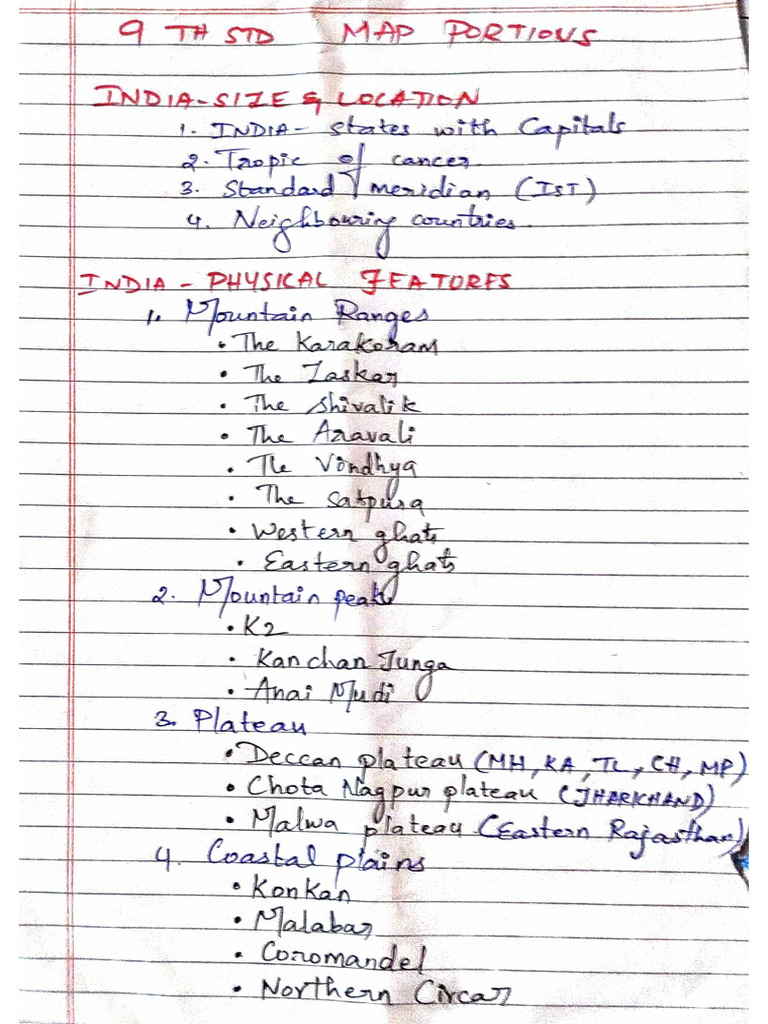 9 TH STD MAP PORTIONS
INDIA-SIZE & LOCATION
1. INDIA- states with Capitals
2. Tropic of cancer
3. Standard meridian (IST)
4. Neighbouring countries.
INDIA - PHYSICAL FEATORES
1. Mountain Ranges
• The Karakoram
• The Zaskar
• The Shivalik
• The Aravali
• The Vindhya
• The Satpura
• Western ghats
• Eastern ghats
2. Mountain peaks
• K2
• Kanchan Junga
• Anai Mudi
3. Plateau
• Deccan plateau (MH, KA, TL, CH, MP)
• Chota Nagpur plateau (JHARKHAND)
• Malwa plateau (Eastern Rajasthan)
4. Coastal plains
• Konkan
• Malabar
• Coromandel
• Northern Circar